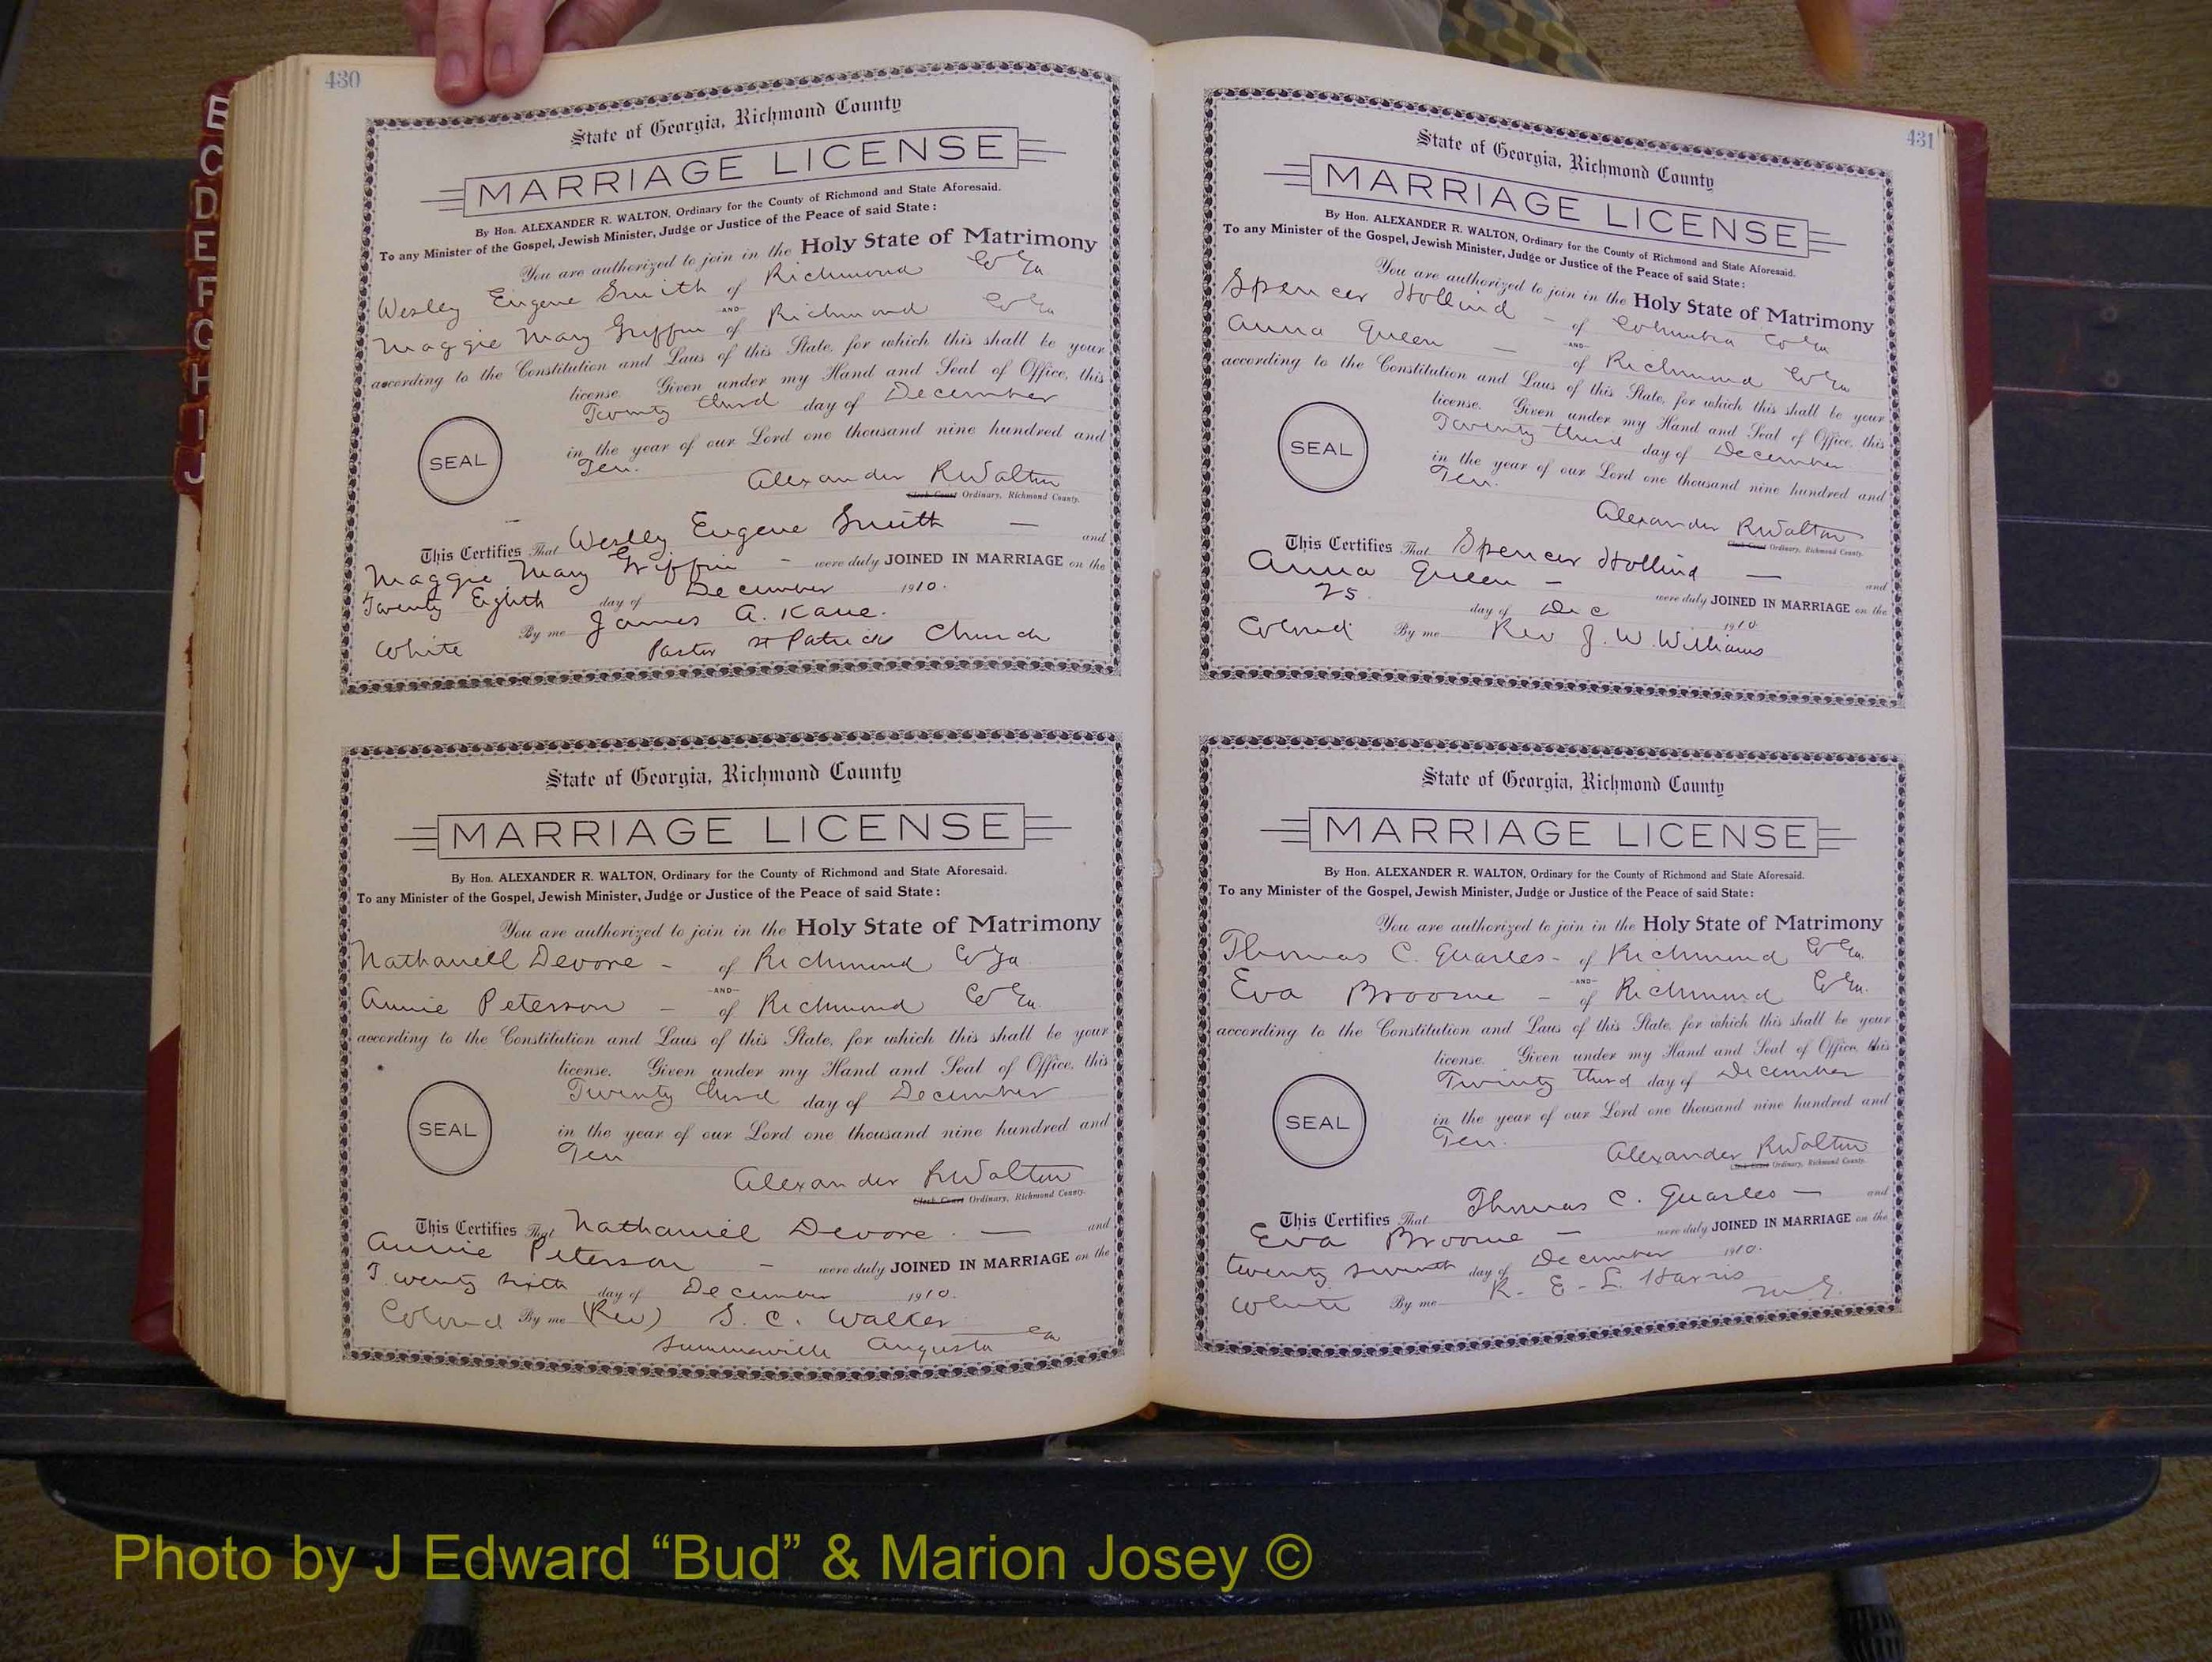 B
C
D
E
F
G
H
I
J
430
State of Georgia, Richmond County
MARRIAGE LICENSE
By Hon. ALEXANDER R. WALTON, Ordinary for the County of Richmond and State Aforesaid.
To any Minister of the Gospel, Jewish Minister, Judge or Justice of the Peace of said State:
You are authorized to join in the Holy State of Matrimony
Wesley Eugene Smith of Richmond Co Ga
AND
Maggie Mary Griffin of Richmond Co Ga
according to the Constitution and Laws of this State, for which this shall be your
license. Given under my Hand and Seal of Office, this
Twenty third day of December
in the year of our Lord one thousand nine hundred and
SEAL
Ten.
Alexander R Walton
Clerk Court Ordinary, Richmond County.
This Certifies That Wesley Eugene Smith — and
Maggie Mary Griffin - were duly JOINED IN MARRIAGE on the
Twenty Eighth day of December 1910.
By me James A. Kane.
White Pastor St Patricks Church
State of Georgia, Richmond County
MARRIAGE LICENSE
By Hon. ALEXANDER R. WALTON, Ordinary for the County of Richmond and State Aforesaid.
To any Minister of the Gospel, Jewish Minister, Judge or Justice of the Peace of said State:
You are authorized to join in the Holy State of Matrimony
Nathaniell Devore - of Richmond Co Ga
AND
Annie Peterson - of Richmond Co Ga.
according to the Constitution and Laws of this State, for which this shall be your
license. Given under my Hand and Seal of Office, this
Twenty third day of December
in the year of our Lord one thousand nine hundred and
SEAL
Ten
Alexander R Walton
Clerk Court Ordinary, Richmond County.
This Certifies That Nathaniel Devore. — and
Annie Peterson - were duly JOINED IN MARRIAGE on the
Twenty sixth day of December 1910.
Colored By me (Rev) S. C. Walker
Summerville Augusta Ga
431
State of Georgia, Richmond County
MARRIAGE LICENSE
By Hon. ALEXANDER R. WALTON, Ordinary for the County of Richmond and State Aforesaid.
To any Minister of the Gospel, Jewish Minister, Judge or Justice of the Peace of said State:
You are authorized to join in the Holy State of Matrimony
Spencer Hollind - of Columbia Co Ga
AND
Anna Queen — of Richmond Co Ga
according to the Constitution and Laws of this State, for which this shall be your
license. Given under my Hand and Seal of Office, this
Twenty third day of December
in the year of our Lord one thousand nine hundred and
SEAL
Ten.
Alexander R Walton
Clerk Court Ordinary, Richmond County.
This Certifies That Spencer Hollind — and
Anna Queen — were duly JOINED IN MARRIAGE on the
25. day of Dec 1910.
Colored By me Rev J. W. Williams
State of Georgia, Richmond County
MARRIAGE LICENSE
By Hon. ALEXANDER R. WALTON, Ordinary for the County of Richmond and State Aforesaid.
To any Minister of the Gospel, Jewish Minister, Judge or Justice of the Peace of said State:
You are authorized to join in the Holy State of Matrimony
Thomas C. Quarles - of Richmond Co Ga.
AND
Eva Broome - of Richmond Co Ga.
according to the Constitution and Laws of this State, for which this shall be your
license. Given under my Hand and Seal of Office, this
Twenty third day of December
in the year of our Lord one thousand nine hundred and
SEAL
Ten.
Alexander R Walton
Clerk Court Ordinary, Richmond County.
This Certifies That Thomas C. Quarles — and
Eva Broome — were duly JOINED IN MARRIAGE on the
twenty seventh day of December 1910.
White By me R. E. L. Harris
Photo by J Edward “Bud” & Marion Josey ©